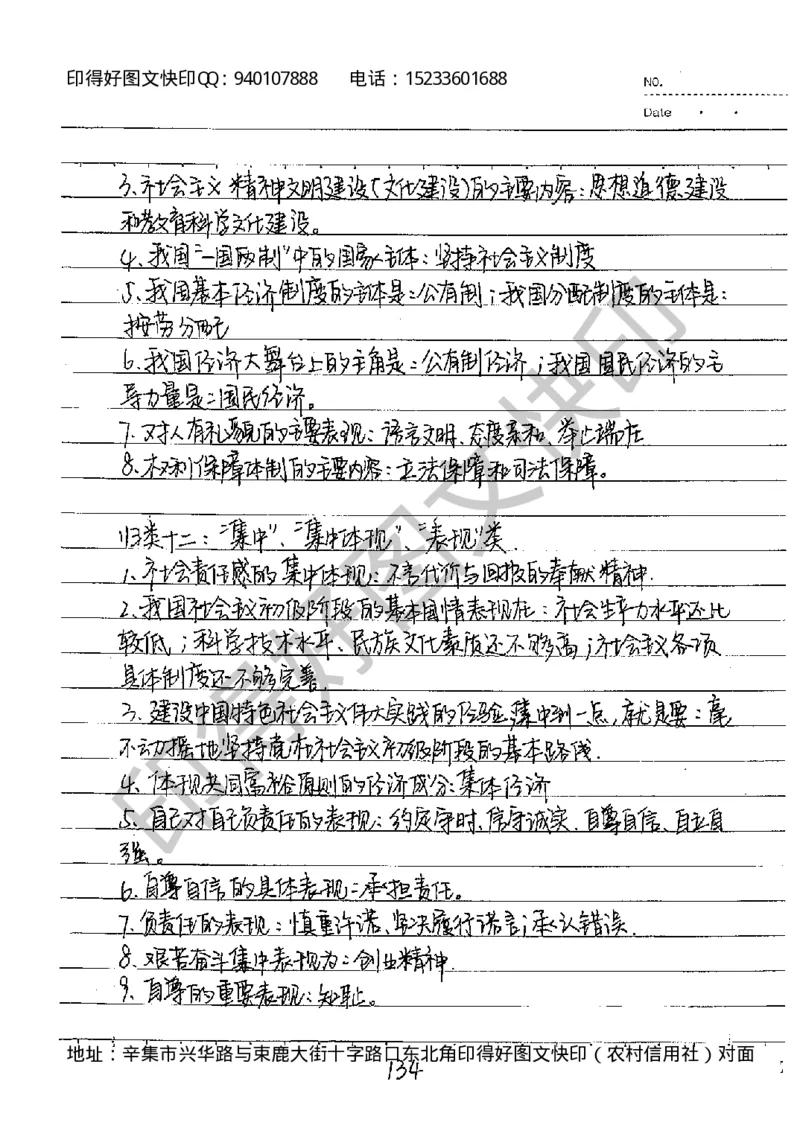 印得好图文快印QQ：940107888 电话：15233601688
NO.
Date
3、社会主义精神文明建设（文化建设）的主要内容：思想道德建设
和教育科学文化建设。
4、我国"一国两制"中的国家主体：坚持社会主义制度
5、我国基本经济制度的主体是：公有制；我国分配制度的主体是：
按劳分配
6、我国经济大舞台上的主角是：公有制经济；我国国民经济的主
导力量是：国民经济。
7、对人有礼貌的主要表现：语言文明、态度亲和、举止端庄
8、权利保障体制的主要内容：立法保障和司法保障。
归类十二："集中"、"集中体现"、"表现"类
1、社会责任感的集中体现：不言代价与回报的奉献精神.
2、我国社会主义初级阶段的基本国情表现在：社会生产力水平还比
较低；科学技术水平、民族文化素质还不够高；社会主义各项
具体制度还不够完善
3、建设中国特色社会主义伟大实践的经验，集中到一点，就是要：毫
不动摇地坚持党在社会主义初级阶段的基本路线.
4、体现共同富裕原则的经济成分：集体经济
5、自己对自己负责任的表现：约定守时、信守诚实、自尊自信、自立自
强。
6、自尊自信的具体表现：承担责任。
7、负责任的表现：慎重许诺、坚决履行诺言；承认错误.
8、艰苦奋斗集中表现为：创业精神.
9、自尊的重要表现：知耻。
地址：辛集市兴华路与束鹿大街十字路口东北角印得好图文快印（农村信用社）对面
134
印得好图文快印